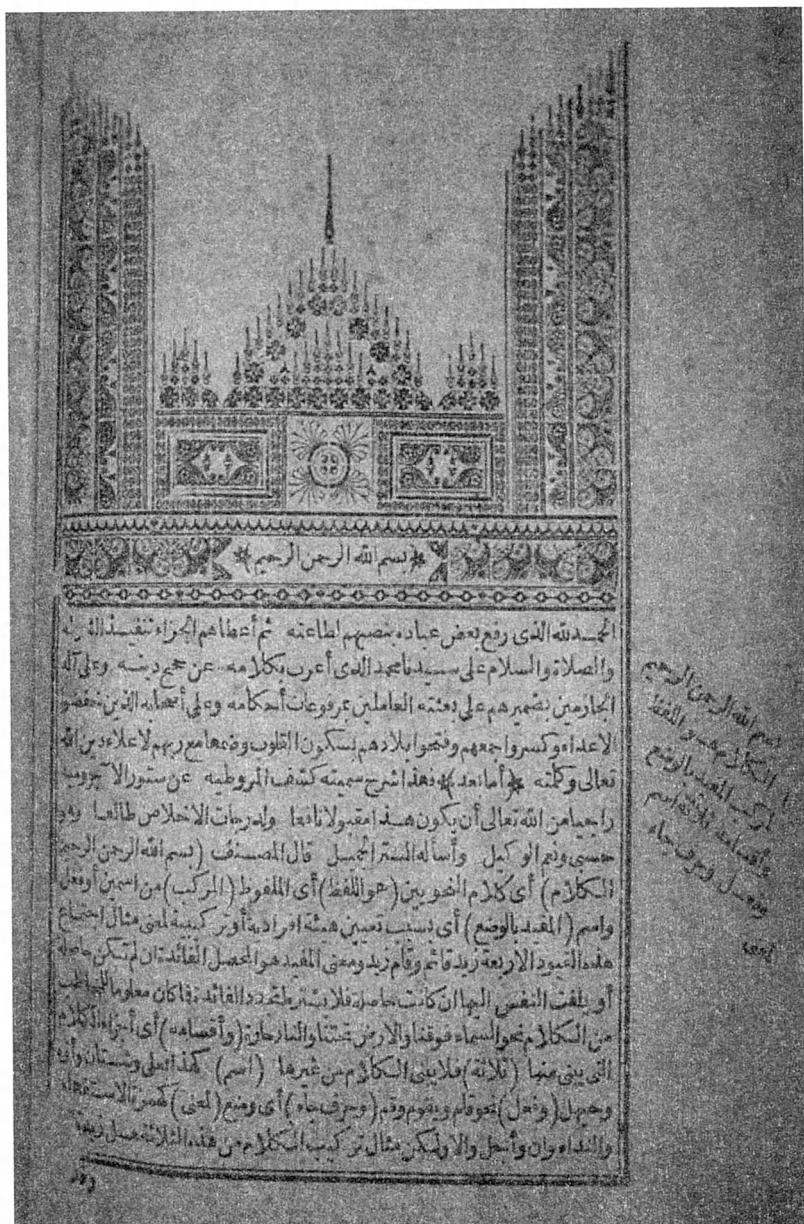 ﴿بسم الله الرحمن الرحيم﴾
الحمد لله الذى رفع بعض عباده بنصبهم لطاعته ثم أعطاهم الجزاء تنفيذا
والصلاة والسلام على سيدنا محمد الذى أعرب بكلامه عن صحيح دينه وعلى آله
الجازمين بضميرهم على بعثته العاملين بمرفوعات أحكامه وعلى أصحابه الذين خفضوا
الاعداء وكسروا جمعهم وفتحوا بلادهم بسكون القلوب وضمها مع ربهم لاعلاء دين الله
تعالى وكلمته ﴿أما بعد﴾ فهذا شرح سميته كشف المروطيه عن ستور الآجروميه
راجيا من الله تعالى أن يكون هذا مقبولا نافعا ولدرجات الاخلاص طالعا وهو
حسبى ونعم الوكيل وأسأله الستر الجميل قال المصنف (بسم الله الرحمن الرحيم
الكلام) أى كلام النحويين (هو اللفظ) أى الملفوظ (المركب) من اسمين أو فعل
واسم (المفيد بالوضع) أى بسبب تعيين هيئة افرادية أو تركيبية لمعنى مثال اجتماع
هذه القيود الأربعة زيد قائم وقام زيد ومعنى المفيد هو المحصل الفائدة ان لم تكن حاصلة
أو يلفت النفس اليها ان كانت حاصلة فلا يشترط تجدد الفائدة فما كان معلوما للمخاطب
من الكلام نحو السماء فوقنا والارض تحتنا والنار حارة (وأقسامه) أى أجزاء الكلام
التى يبنى منها (ثلاثة) فلا يبنى الكلام من غيرها (اسم) كهذا
(وفعل) نحو قام ويقوم وقم (وحرف جاء) أى وضع (لمعنى) كهمزة الاستفهام
والنداء وان وأجل مثال تركيب الكلام من هذه الثلاثة هل زيد
بسم الله الرحمن الرحيم
الكلام هو اللفظ
المركب المفيد بالوضع
وأقسامه ثلاثة اسم
وفعل وحرف جاء
لمعنى